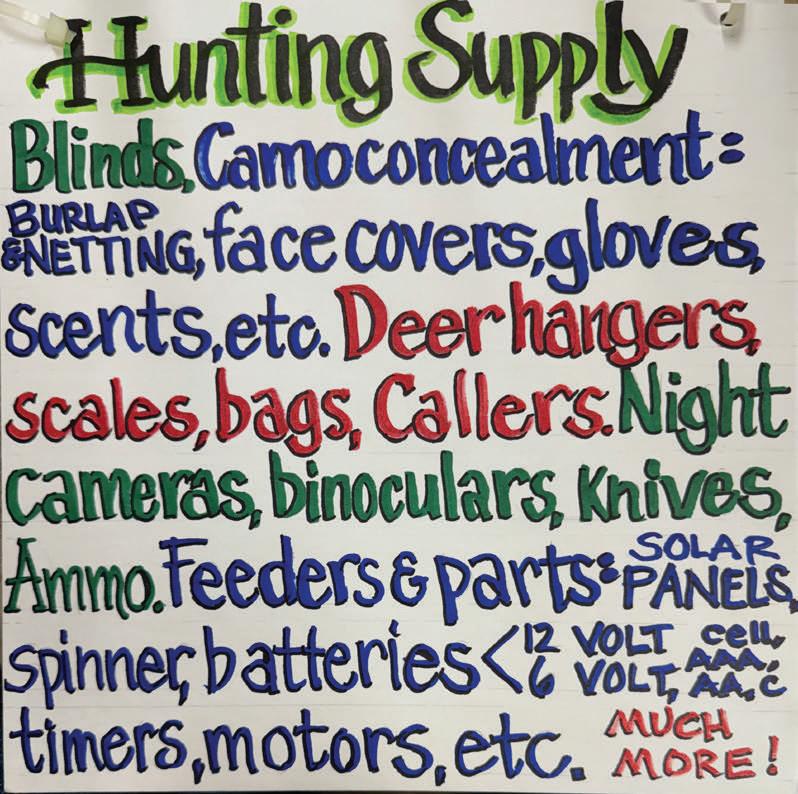 Hunting Supply
Blinds, Camo concealment:
BURLAP & NETTING, face covers, gloves,
scents, etc. Deer hangers,
scales, bags, Callers. Night
cameras, binoculars, Knives,
Ammo. Feeders & parts: SOLAR PANELS,
spinner, batteries < 12 VOLT 6 VOLT, cell, AAA, AA, C
timers, motors, etc. MUCH MORE!